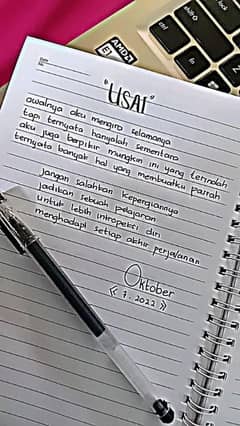 AMD
"USAI"
awalnya aku mengira selamanya
tapi ternyata hanyalah sementara
aku juga berpikir mungkin ini yang terindah
ternyata banyak hal yang membuatku patah
Jangan salahkan kepergiannya
jadikan sebuah pelajaran
untuk lebih intropeksi diri
menghadapi setiap akhir perjalanan
Oktober
« 7.2022 »